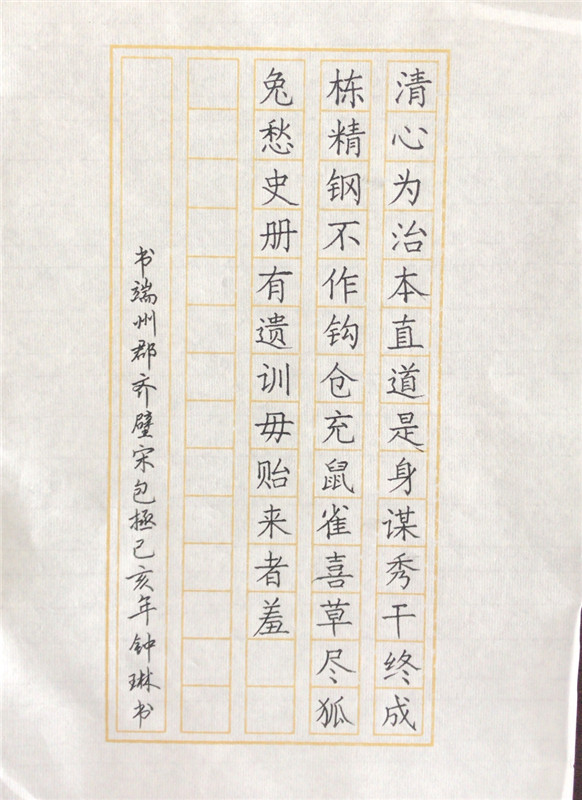 清心为治本直道是身谋秀干终成
栋精钢不作钩仓充鼠雀喜草尽狐
兔愁史册有遗训毋贻来者羞
书端州郡齐壁宋包拯己亥年钟琳书